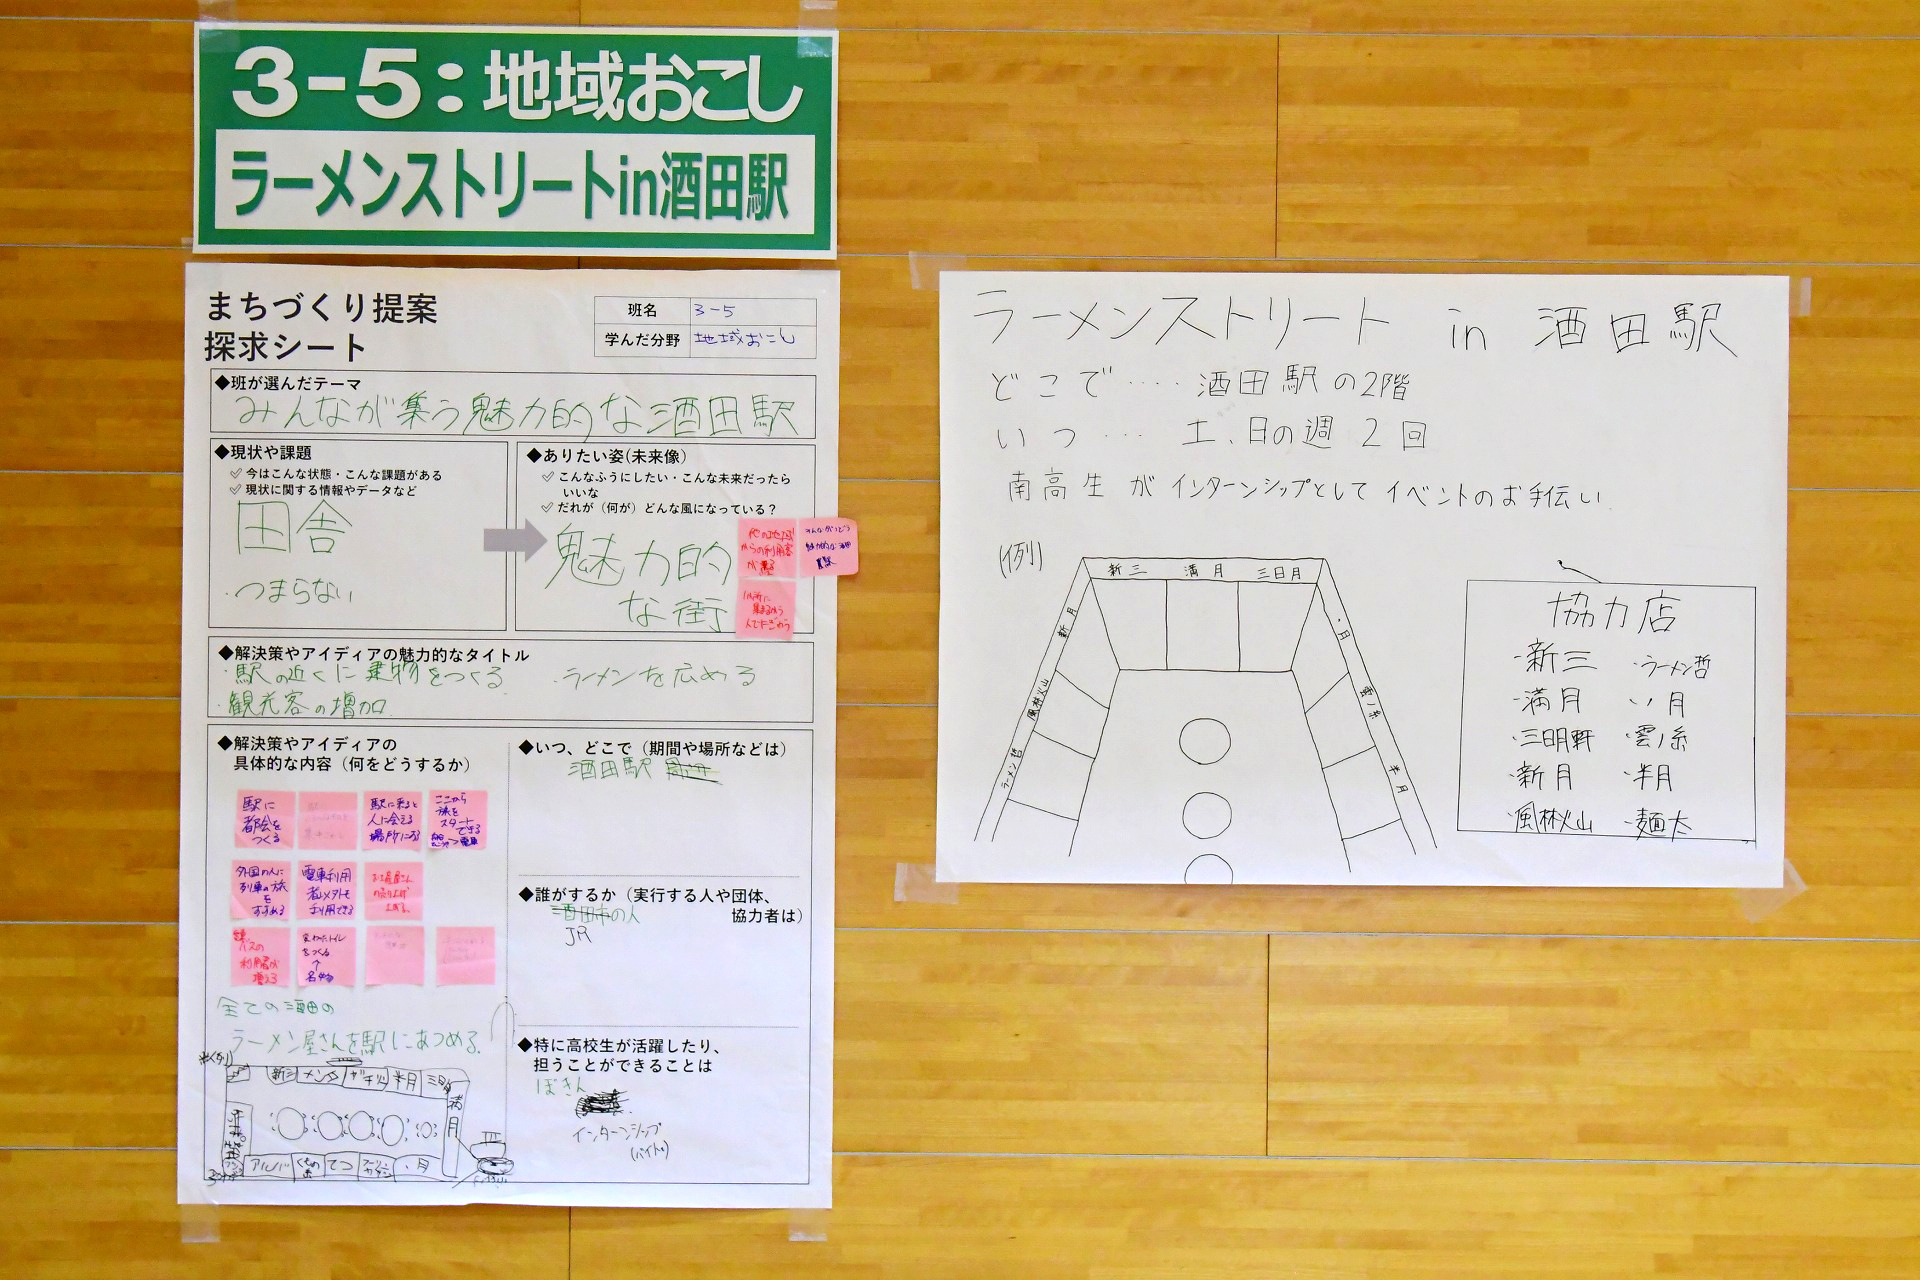 3-5:地域おこし
ラーメンストリートin酒田駅
まちづくり提案
探求シート
班名 3-5
学んだ分野 地域おこし
◆班が選んだテーマ
みんなが集う魅力的な酒田駅
◆現状や課題
今はこんな状態・こんな課題がある
現状に関する情報やデータなど
田舎
・つまらない
◆ありたい姿(未来像)
こんなふうにしたい・こんな未来だったら
いいな
だれが(何が)どんな風になっている?
魅力的
な街
他の地域
からの利用客
が来る
みんながつどう
魅力的な酒田
駅
◆解決策やアイディアの魅力的なタイトル
・駅の近くに建物をつくる ・ラーメンを広める
・観光客の増加
◆解決策やアイディアの
具体的な内容(何をどうするか)
駅に
都会を
つくる
駅に来ると
人に会える
場所になる
ここから
旅を
スタート
できる
外国の人に
列車の旅
を
すすめる
電車利用
者以外も
利用できる
お土産屋さん
の売り上げ
上がる
バスの
利用者が
増える
変わったトイレ
をつくる
↑
名物
全ての酒田の
ラーメン屋さんを駅にあつめる。
新三
半月
満月
アルバ
くもの糸
てつ
・月
◆いつ、どこで(期間や場所などは)
酒田駅
◆誰がするか(実行する人や団体、
協力者は)
酒田市の人
JR
◆特に高校生が活躍したり、
担うことができることは
ぼきん
インターンシップ
(バイト)
ラーメンストリート in 酒田駅
どこで‥‥酒田駅の2階
いつ‥‥土、日の週2回
南高生がインターンシップとしてイベントのお手伝い
(例)
新三 満月 三日月
新月
風林火山
ラーメン哲
・月
雲ノ糸
半月
協力店
・新三 ・ラーメン哲
・満月 ・い月
・三日月軒 ・雲ノ糸
・新月 ・半月
・風林火山 ・麺太